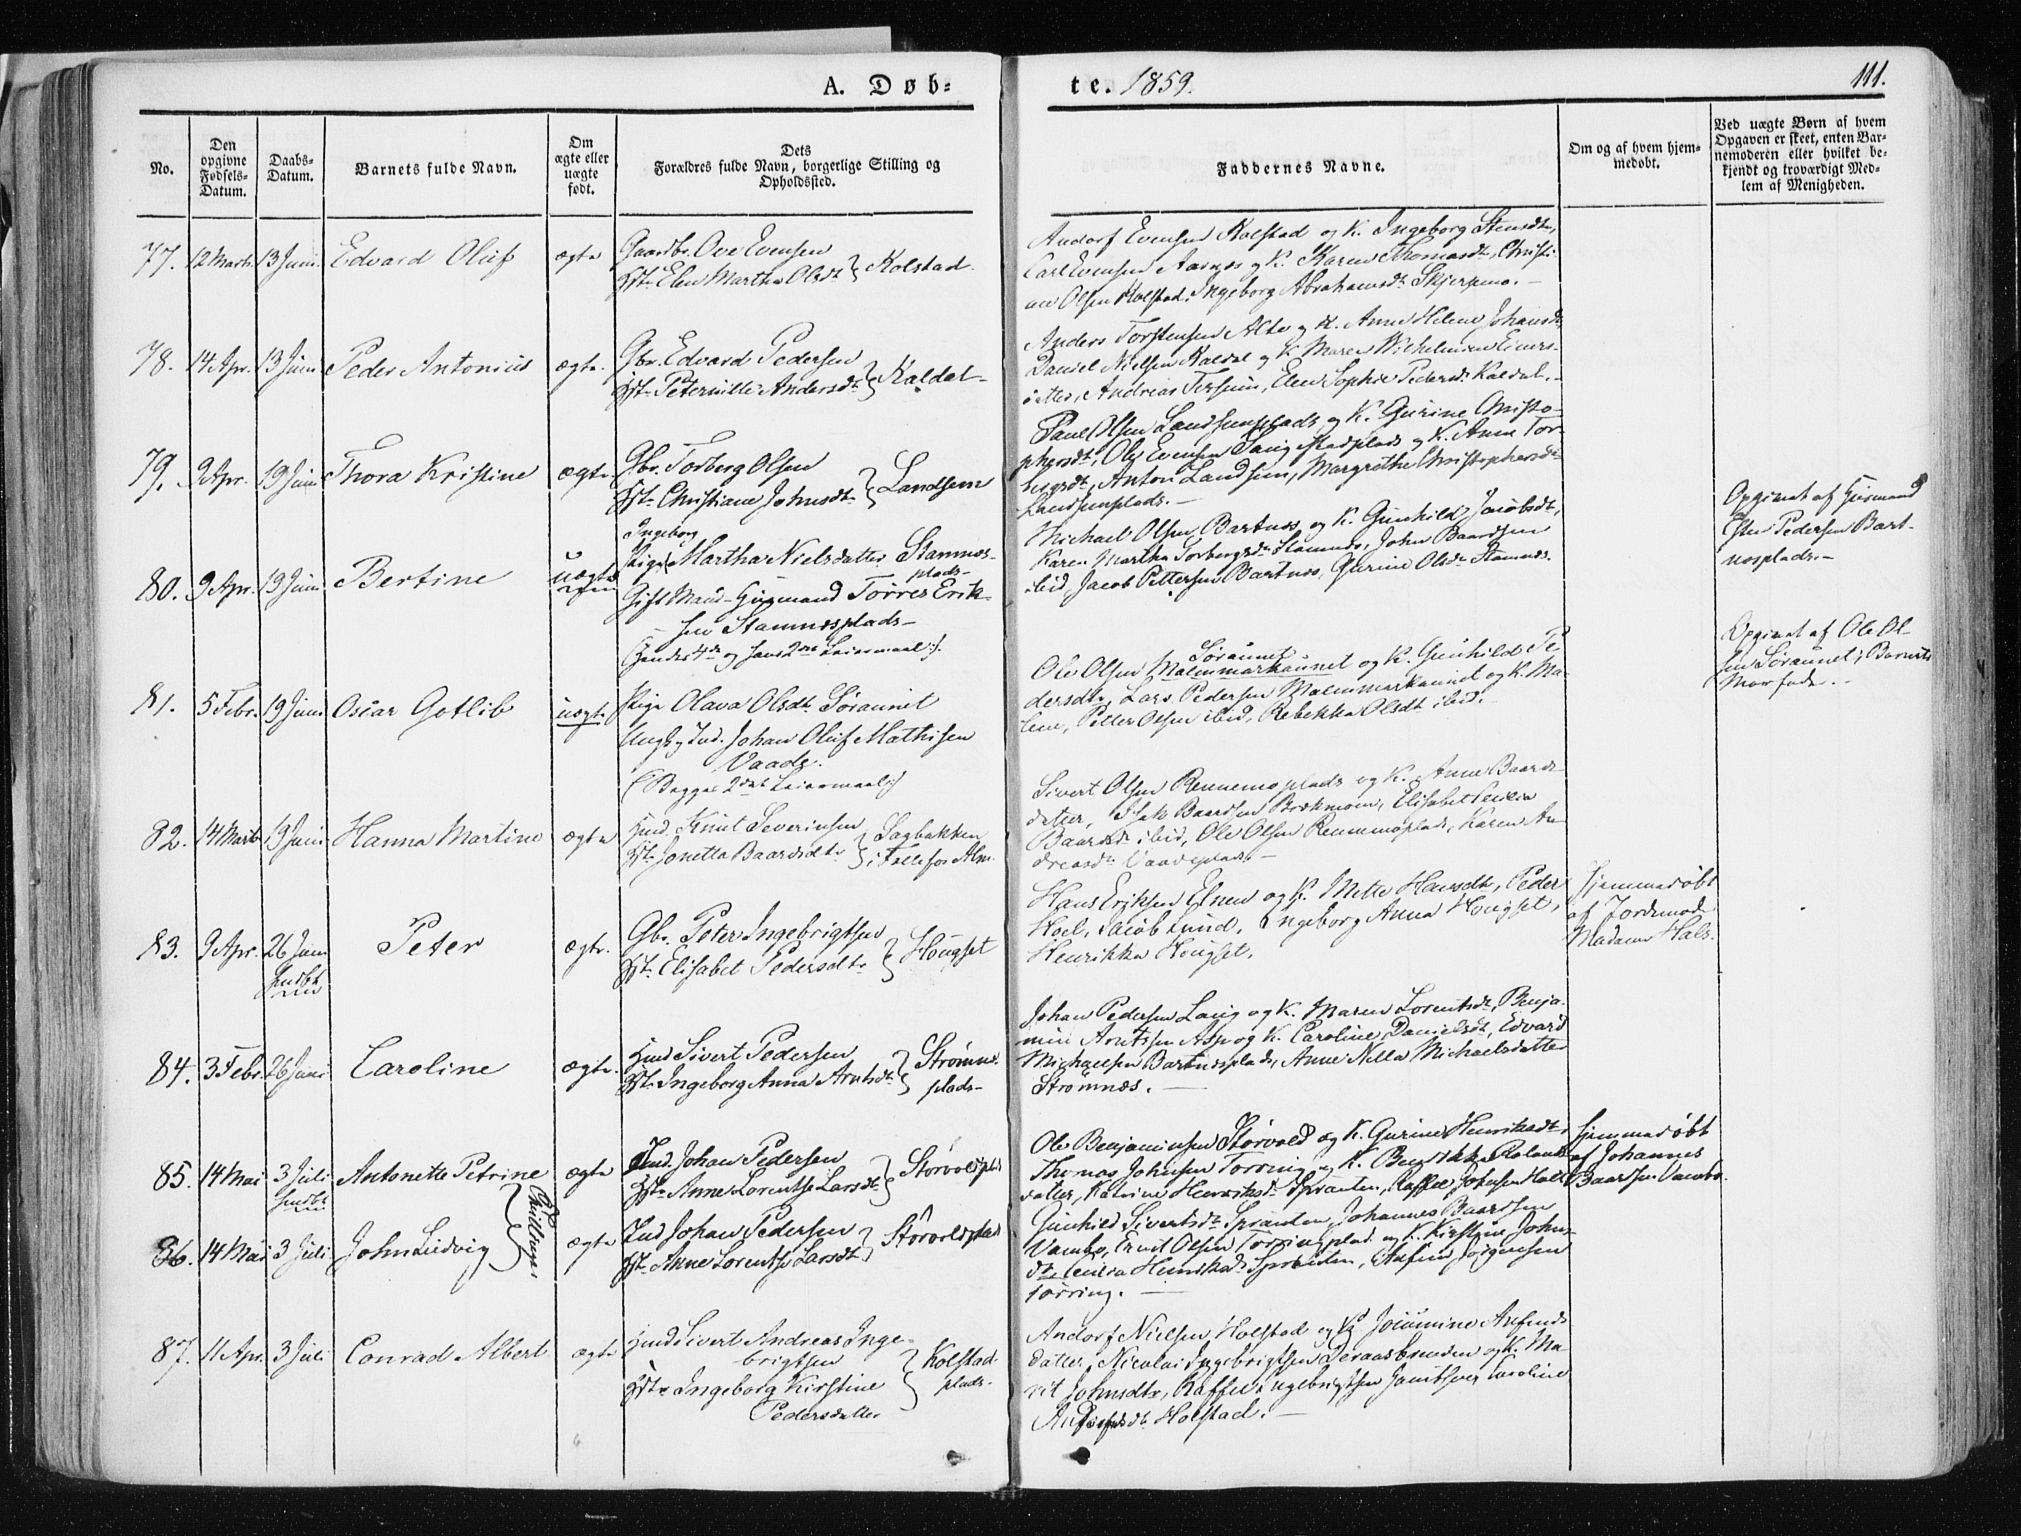 A. Døb-
te. 1859.
111.
No.
Den opgivne Fødsels-Datum.
Daabs-Datum.
Barnets fulde Navn.
Om ægte eller uægte født.
Dets Forældres fulde Navn, borgerlige Stilling og Opholdssted.
Faddernes Navne.
Om og af hvem hjem-medøbt.
Ved uægte Børn af hvem Opgaven er skeet, enten Bar-nemoderen eller hvilket be-kjendt og troværdigt Med-lem af Menigheden.
77. 12 Marts. 13 Juni. Edvard Oluf ægte
Gaardbr. Ove Evensen
Hst. Elen Martha Olsdt. } Kolstad.
Andorf Evensen Kolstad og K. Ingeborg Stensdt,
Carl Evensen Aarnes og K. Karen Thomasdt, Christi-
ane Olsen Kolstad, Ingeborg Abrahamsdt Skjerpmo.-
78. 14 Apr. 13 Juni Peder Antonius ægte.
Gbr. Edvard Pedersen
Hst. Peternille Andersdt. } Kaldal-
Anders Torstensen Alte og K. Anne Helene Johansdt,
Daniel Nielsen Kaldal og K. Maren Wilhelmine Einers-
datter, Andreas, Elen Sophie Pedersdt Kaldal.-
79. 9 Apr. 19 Juni Thora Kristine ægte.
Gbr. Torberg Olsen
Hst. Christiane Johnsdt. } Landsem
Paul Olsen Landsemplads og K. Gurine Christo-
phersdt, Ole Evensen plads og K. Anne Tor-
bergsdt, Anton Landsem, Margrethe Christophersdt
Landsemplads.-
80. 9 Apr. 19 Juni Bertine uægte
Ingeborg
Pige Martha Nielsdatter Stamnes-
plads-
Gift Mand- Huusmand Torres Erik-
sen Stamnesplads-
(Hendes 4de og hans 2det Leiermaal:).
Michael Olsen Bartnes og K. Gunhild Jacobsdt,
Karen Martha Torbergsdt Stamnes, John Baardsen
ibid, Jacob Pettersen Bartnes, Gurine Olsdt Stamnes.
Opgivet af Huusmand
Pedersen Bart-
nesplads.-
81. 5 Febr. 19 Juni Oscar Gotlib uægte.
Pige Olava Olsdt. Søraunet
Ungk. og Ind. Johan Oluf Mathisen
Vaade.
(Begges 2det Leiermaal:)
Søraunet
Ole Olsen Malmmarkaunet og K. Gunhild Pe-
dersdt, Lars Pedersen Malmmarkaunet og K. Ma-
lene, Petter Olsen ibid, Rebekka Olsdt ibid.
Opgivet af Ole Ol-
sen Søraunet, Barnets
Morfader.-
82. 14 Marts 19 Juni Hanna Martine ægte
Hmd. Knut Severinsen
Hst. Jonetta Baardsdt. } Sagbakken
i Follafos Alm.
Sivert Olsen Rennemsplads og K. Anne Baards-
datter, Isak Baardsen, Elisabet
Baardsdt ibid, Ole Olsen Rennemsplads, Karen An-
dreasdt Vaadeplads.-
83. 9 Apr. 26 Juni Peter ægte.
Hmdbt
Gbr. Peter Ingebrigtsen
Hst. Elisabet Pedersdt. } Hougset
Hans Eriksen Elnen og K. Mette Hansdt, Peder
Hoel, Jacob Lund, Ingeborg Anna Hougset,
Henrikka Hougset.
Hjemmedøbt
af Jordemod
Madame Hals.
84. 3 Febr. 26 Juni Caroline ægte.
Hmd Sivert Pedersen
Hst. Ingeborg Anna Arntsdt. } Strømnes-
plads-
Johan Pedersen Laug og K. Maren Lorentsdt, Benja-
min Arntsen Asp og K. Caroline Danielsdt, Edvard
Michaelsen Bartnesplads, Anne Nella Michaelsdatter
Strømnæs.-
85. 14 Mai 3 Juli Antonette Petrine ægte
Hmdbt
Tvillinger
Ind. Johan Pedersen
Hst. Anne Lorentse Larsdt. } Storvoldplads
Ole Benjaminsen Storvold og K. Gurine Henriksdt,
Thomas Johnsen Torring og K. Bendikke Rolands-
datter, Katrine Henriksdt Sprauten, Kaffel Johnsen Holt
Hjemmedøbt
af Johannes
Baardsen Vambo.
86. 14 Mai 3 Juli John Ludvig ægte
Ind Johan Pedersen
Hst. Anne Lorentse Larsdt. } Storvoldplads
Gunhild Sivertsdt Sprauten, Johannes Baardsen
Vambo, Ernst Olsen Torringplad. og K. Kirstine John-
dt, Henriksdt Sprauten, Anfin Jørgensen
Torring.-
87. 11 Apr. 3 Juli Conrad Albert ægte
Hmd Sivert Andreas Inge-
brigtsen
Hst. Ingeborg Kirstine
Pedersdatter } Kolstad-
plads.
Andorf Nielsen Holstad og K. Joruminе Anfinds-
datter, Nicolai Ingebrigtsen og K. Ma-
rit Johnsdt, Kaffel Ingebrigtsen, Caroline
Anfinsdt Holstad.-